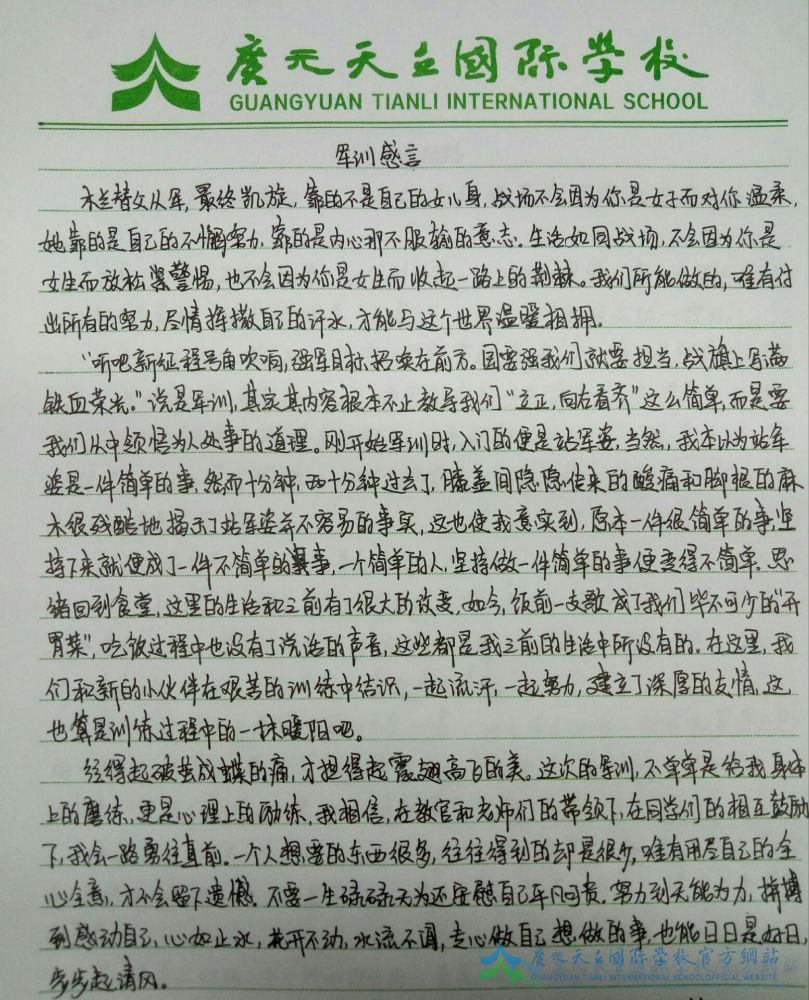 廣元天立國际学校
GUANGYUAN TIANLI INTERNATIONAL SCHOOL
军训感言
木兰替父从军,最终凯旋,靠的不是自己的女儿身,战场不会因为你是女子而对你温柔,
她靠的是自己的不懈努力,靠的是内心那不服输的意志。生活如同战场,不会因为你是
女生而放松警惕,也不会因为你是女生而收起一路上的荆棘。我们所能做的,唯有付
出所有的努力,尽情挥撒自己的汗水,才能与这个世界温暖相拥。
“听吧新征程号角吹响,强军目标招唤在前方。国要强我们就要担当,战旗上写满
铁血荣光。”说是军训,其实其内容根本不止教导我们“立正,向右看齐”这么简单,而是要
我们从中领悟为人处事的道理。刚开始军训时,入门的便是站军姿,当然,我本以为站军
姿是一件简单的事,然而十分钟,二十分钟过去了,膝盖间隐隐传来的酸痛和脚根的麻
木很残酷地揭示了站军姿并不容易的事实,这也使我意实到,原本一件很简单的事,坚
持下来就便成了一件不简单的事,一个简单的人,坚持做一件简单的事便变得不简单。思
绪回到食堂,这里的生活和之前有了很大的改变,如今,饭前一支歌成了我们毕不可少的“开
胃菜”,吃饭过程中也没有了说话的声音,这些都是我之前的生活中所没有的。在这里,我
们和新的小伙伴在艰苦的训练中结识,一起流汗,一起努力,建立了深厚的友情,这
也算是训练过程中的一抹暖阳吧。
经得起破茧成蝶的痛,才担得起震翅高飞的美。这次的军训,不单单是给我身体
上的磨练,更是心理上的励练,我相信,在教官和老师们的带领下,在同学们的相互鼓励
下,我会一路勇往直前。一个人想要的东西很多,往往得到的却是很少,唯有用尽自己的全
心全意,才不会留下遗憾。不要一生碌碌无为还安慰自己平凡可贵。努力到无能为力,拼搏
到感动自己,心如止水,花开不动,水流不闻,走心做自己想做的事,也能日日是好日,
步步起清风。
廣元天立國際學校官方網站
GUANGYUAN TIANLI INTERNATIONAL SCHOOL OFFICIAL WEBSITE